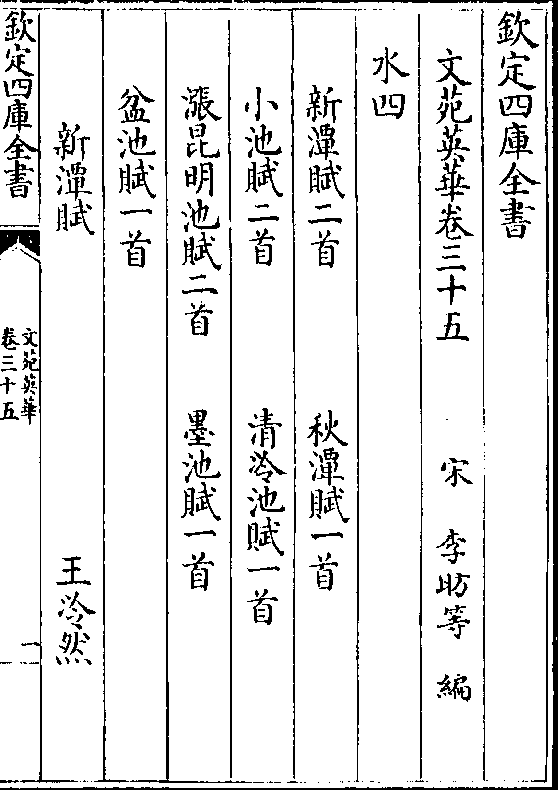 欽定四庫全書
文苑英華卷三十五
宋 李昉等 編
水四
新潭賦二首 秋潭賦一首
小池賦二首 清泠池賦一首
漲昆明池賦二首 墨池賦一首
盆池賦一首
新潭賦 王泠然
欽定四庫全書
文苑英華
卷三十五
一